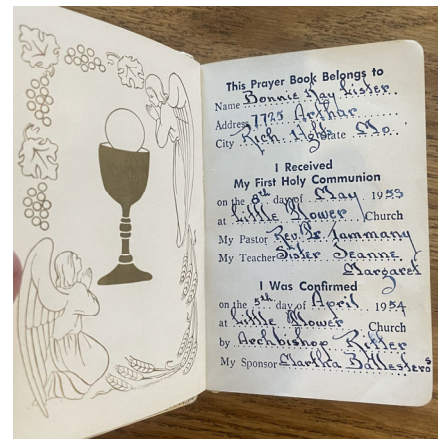 This Prayer Book Belongs to
Name Bonnie Kay Lister
Address 7725 Arthur
City Rich. Hgts State Mo.
I Received
My First Holy Communion
on the 8th day of May 1953
at Little Flower Church
My Pastor Rev. Fr. Tammany
My Teacher Sister Jeanne
Margaret
I Was Confirmed
on the 5th day of April 1954
at Little Flower Church
by Archbishop Ritter
My Sponsor Martha Ballesteros